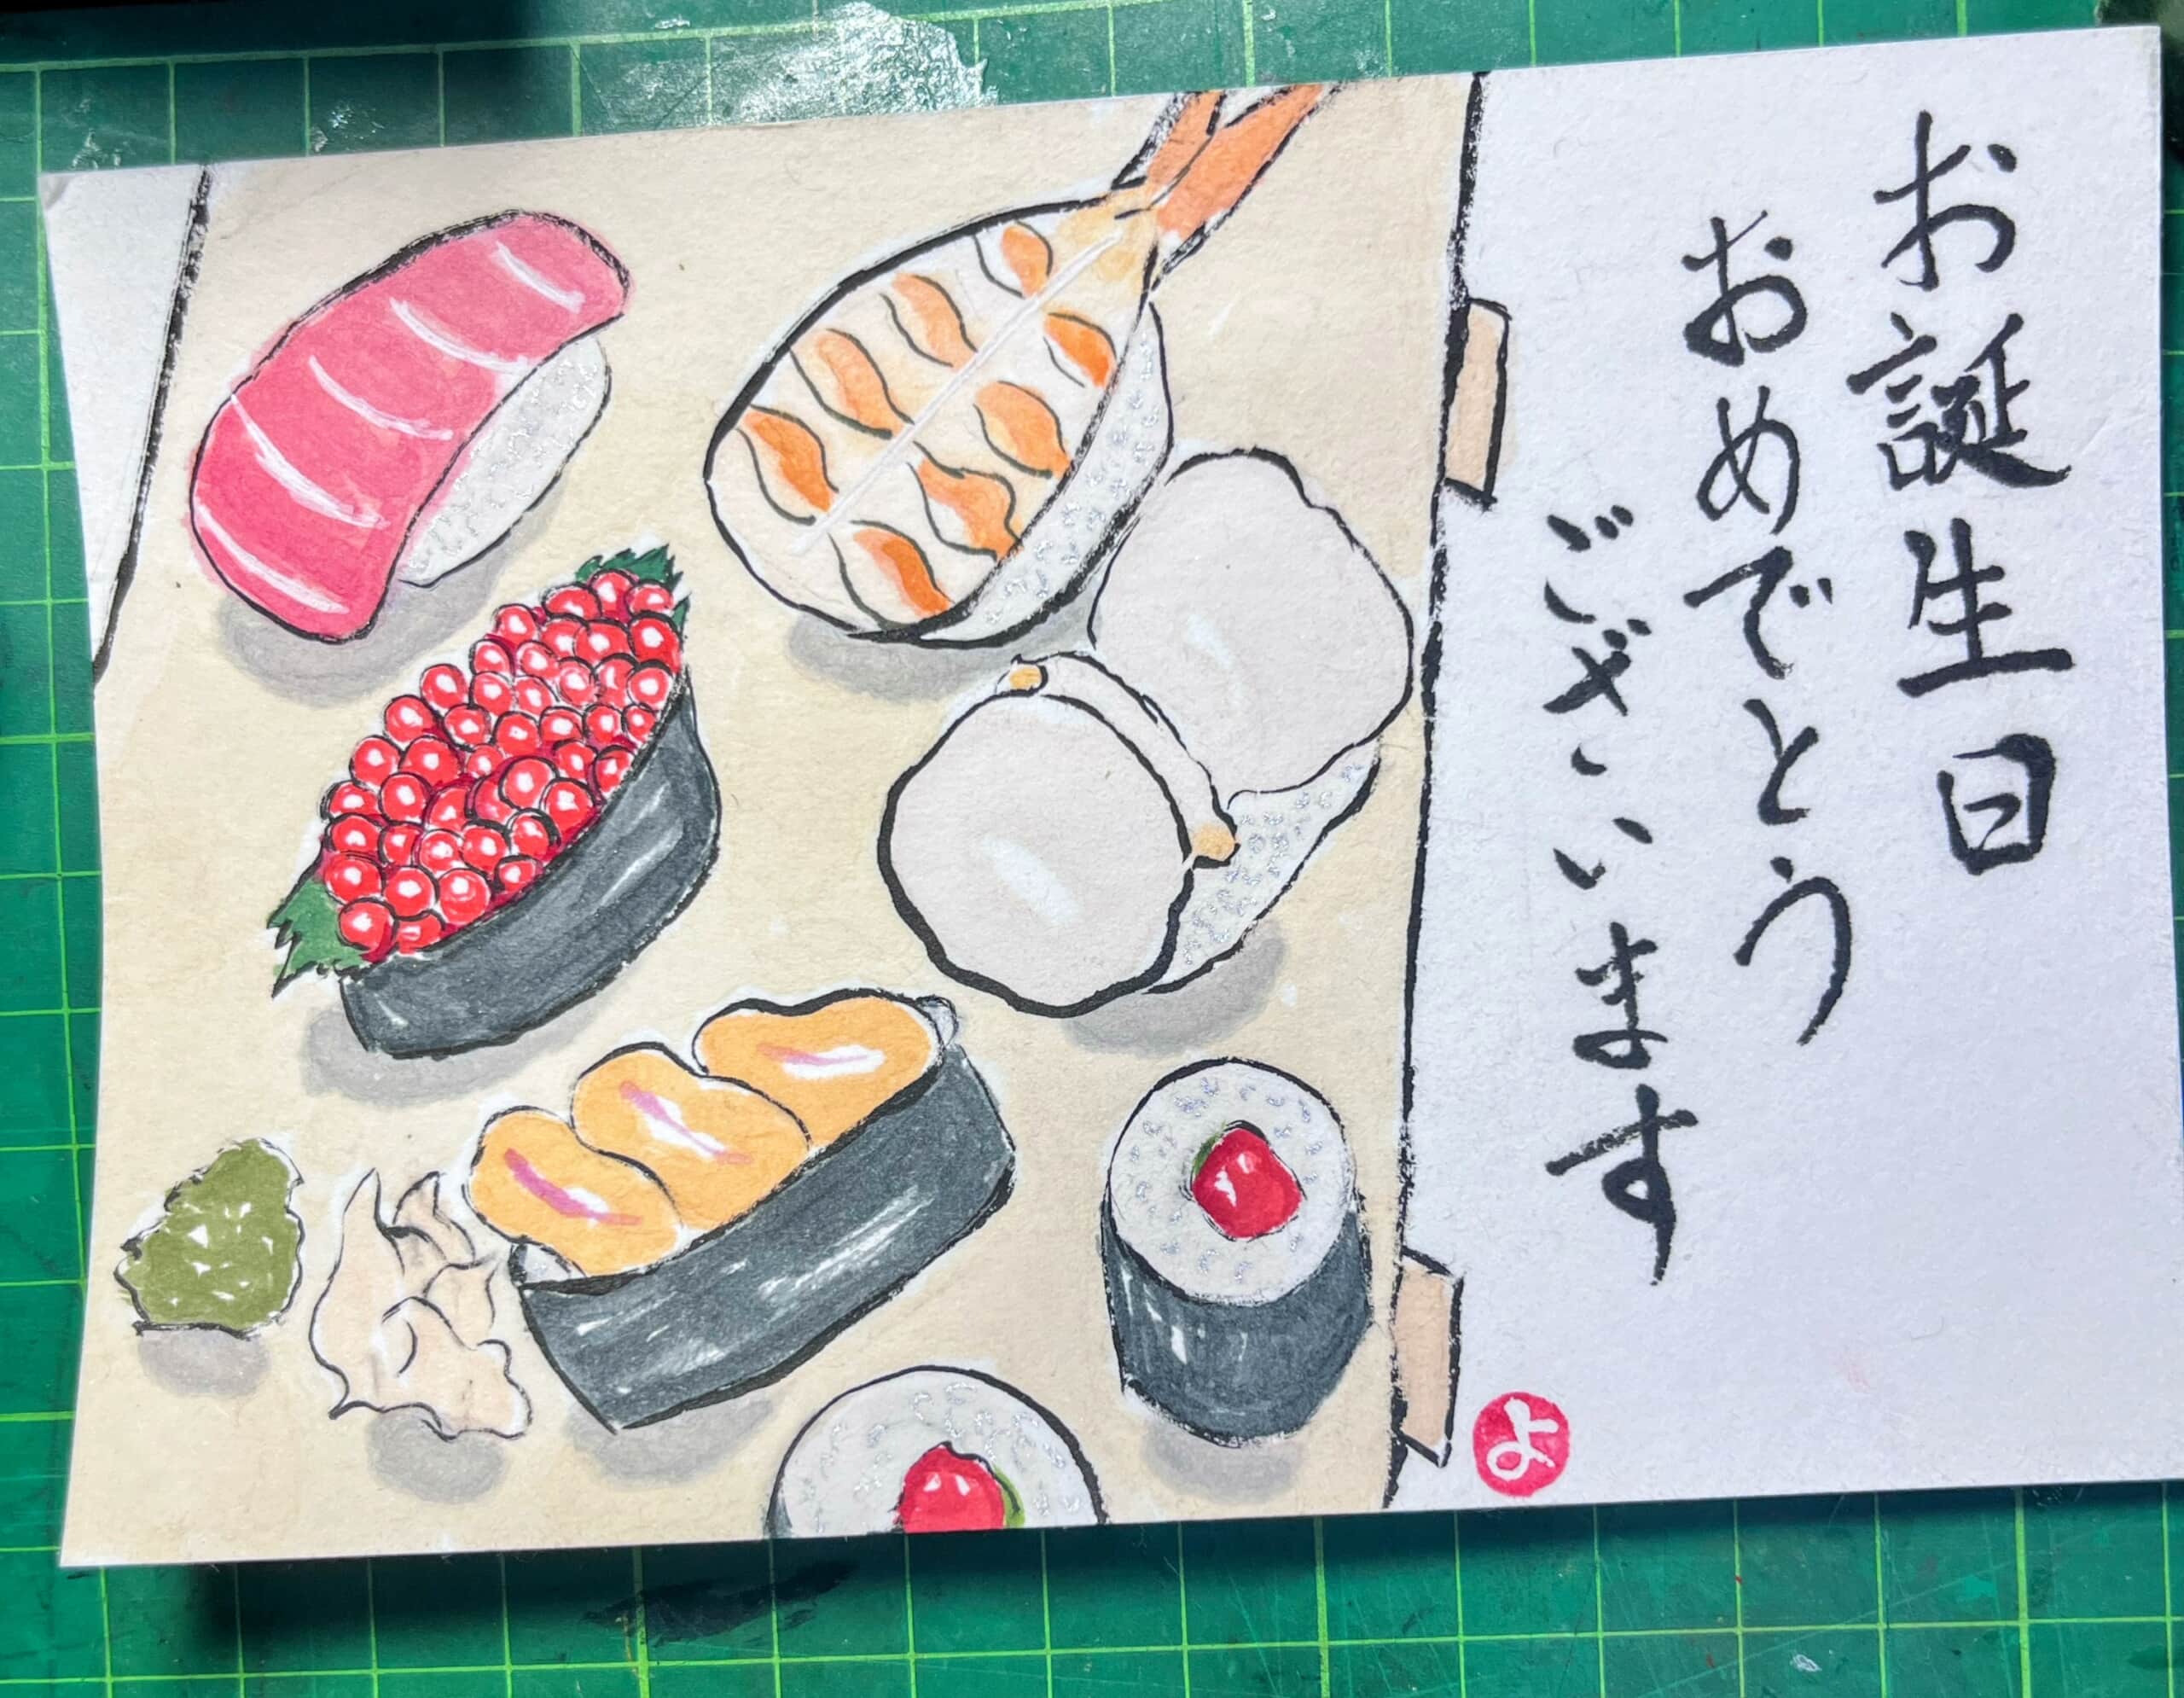 お誕生日
おめでとう
ございます
よ